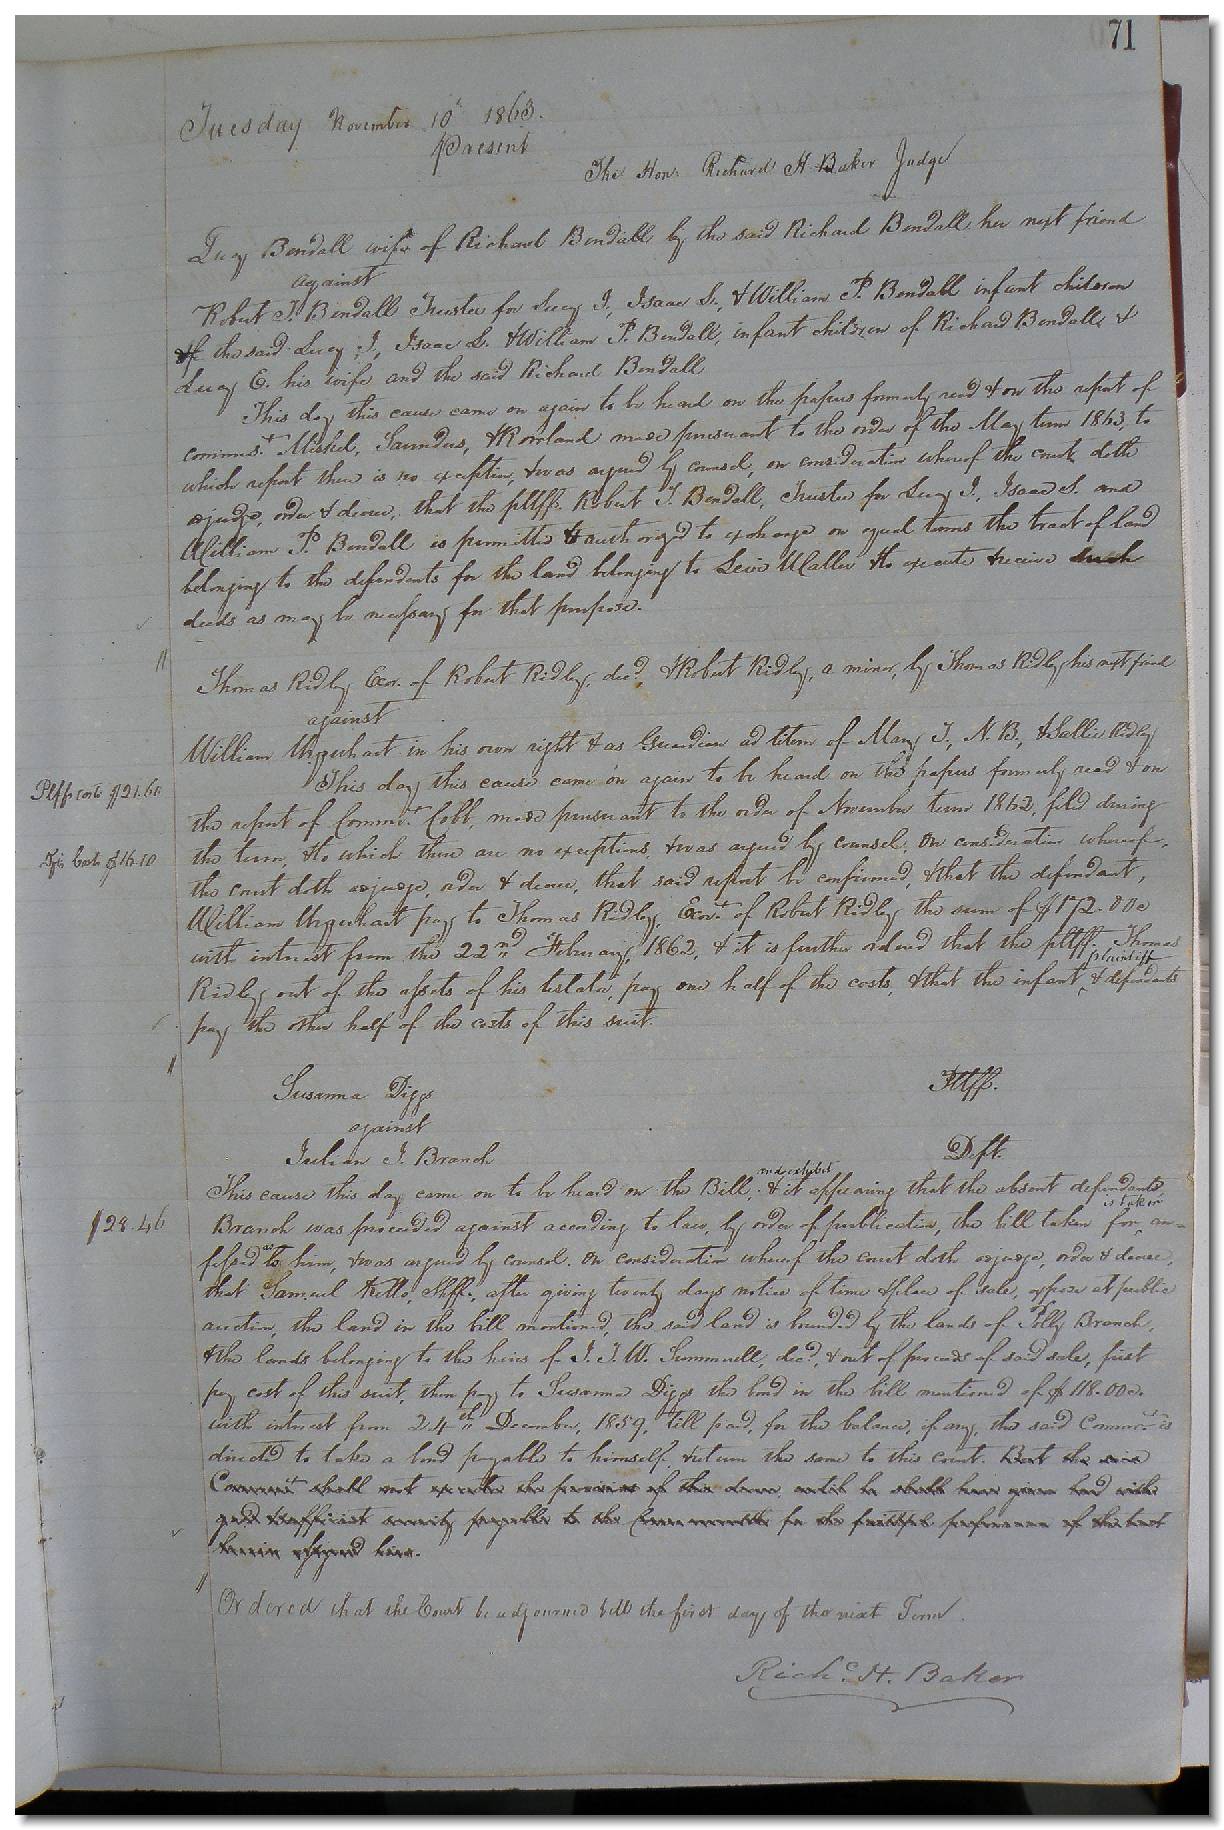 71
Tuesday November 10th 1863.
Present
The Hon. Richard H Baker Judge
Lucy Bendall wife of Richard Bendall by the said Richard Bendall her next friend
against
Robert T. Bendall Trustee for Lucy J., Isaac S., & William P. Bendall infant children
of the said Lucy J., Isaac S. & William P. Bendall, infant children of Richard Bendall, &
Lucy E. his wife and the said Richard Bendall
This day this cause came on again to be heard on the papers formerly read & on the report of
commrs. Saunders, & Rowland made pursuant to the order of the May term 1863, to
which report there is no exception, & was argued by counsel, on consideration whereof the court doth
adjudge, order & decree, that the pltff. Robert T. Bendall, Trustee for Lucy J., Isaac S. and
William P. Bendall is permitted & authorized to exchange on equal terms the tract of land
belonging to the defendants for the land belonging to Levi Waller & to execute & receive such
deeds as may be necessary for that purpose.
Thomas Ridley Exor. of Robert Ridley, decd. & Robert Ridley, a minor, by Thomas Ridley his next friend
against
William Urquhart in his own right & as Guardian ad litem of Mary J, N. B., & Sallie Ridley
Pltffs costs $21.60
This day this cause came on again to be heard on the papers formerly read & on
the report of Commr. Cobb, made pursuant to the order of November term 1862, filed during
Dfts Costs $16.10
the term, & to which there are no exceptions, & was argued by counsel, On consideration whereof,
the court doth adjudge, order & decree, that said report be confirmed, & that the defendant,
William Urquhart pay to Thomas Ridley Exor. of Robert Ridley the sum of $172.00c
with interest from the 22nd February, 1862, & it is further ordered that the pltff. Thomas
Ridley out of the assets of his testator, pay one half of the costs, & that the infant plaintiff & defendants
pay the other half of the costs of this suit.
Susanna Diggs Pltff.
against
Julian J. Branch Deft.
This cause this day came on to be heard on the Bill, and exhibit & it appearing that the absent defendant
$28.46
Branch was proceeded against according to law, by order of publication, the bill taken is taken for con-
fessed as to him, & was argued by counsel. On consideration whereof the court doth adjudge, order & decree,
that Samuel Kello, Shff., after giving twenty days notice of time & place of sale, expose at public
auction, the land in the bill mentioned, the said land is bounded by the lands of Polly Branch,
& the lands belonging to the heirs of J. J. W. Summerell, decd., & out of proceeds of said sale, first
pay cost of this suit, then pay to Susanna Diggs the bond in the bill mentioned of $118.00c.
with interest from 24th December, 1859, till paid, for the balance, if any, the said Commr. is
directed to take a bond payable to himself, & return the same to this court. But the said
Commr. shall not execute the provisions of this decree until he shall have given bond with
good & sufficient security payable to the Commonwealth for the faithful performance of the trust
herein assigned him.
Ordered that the Court be adjourned till the first day of the next Term.
Richd. H. Baker